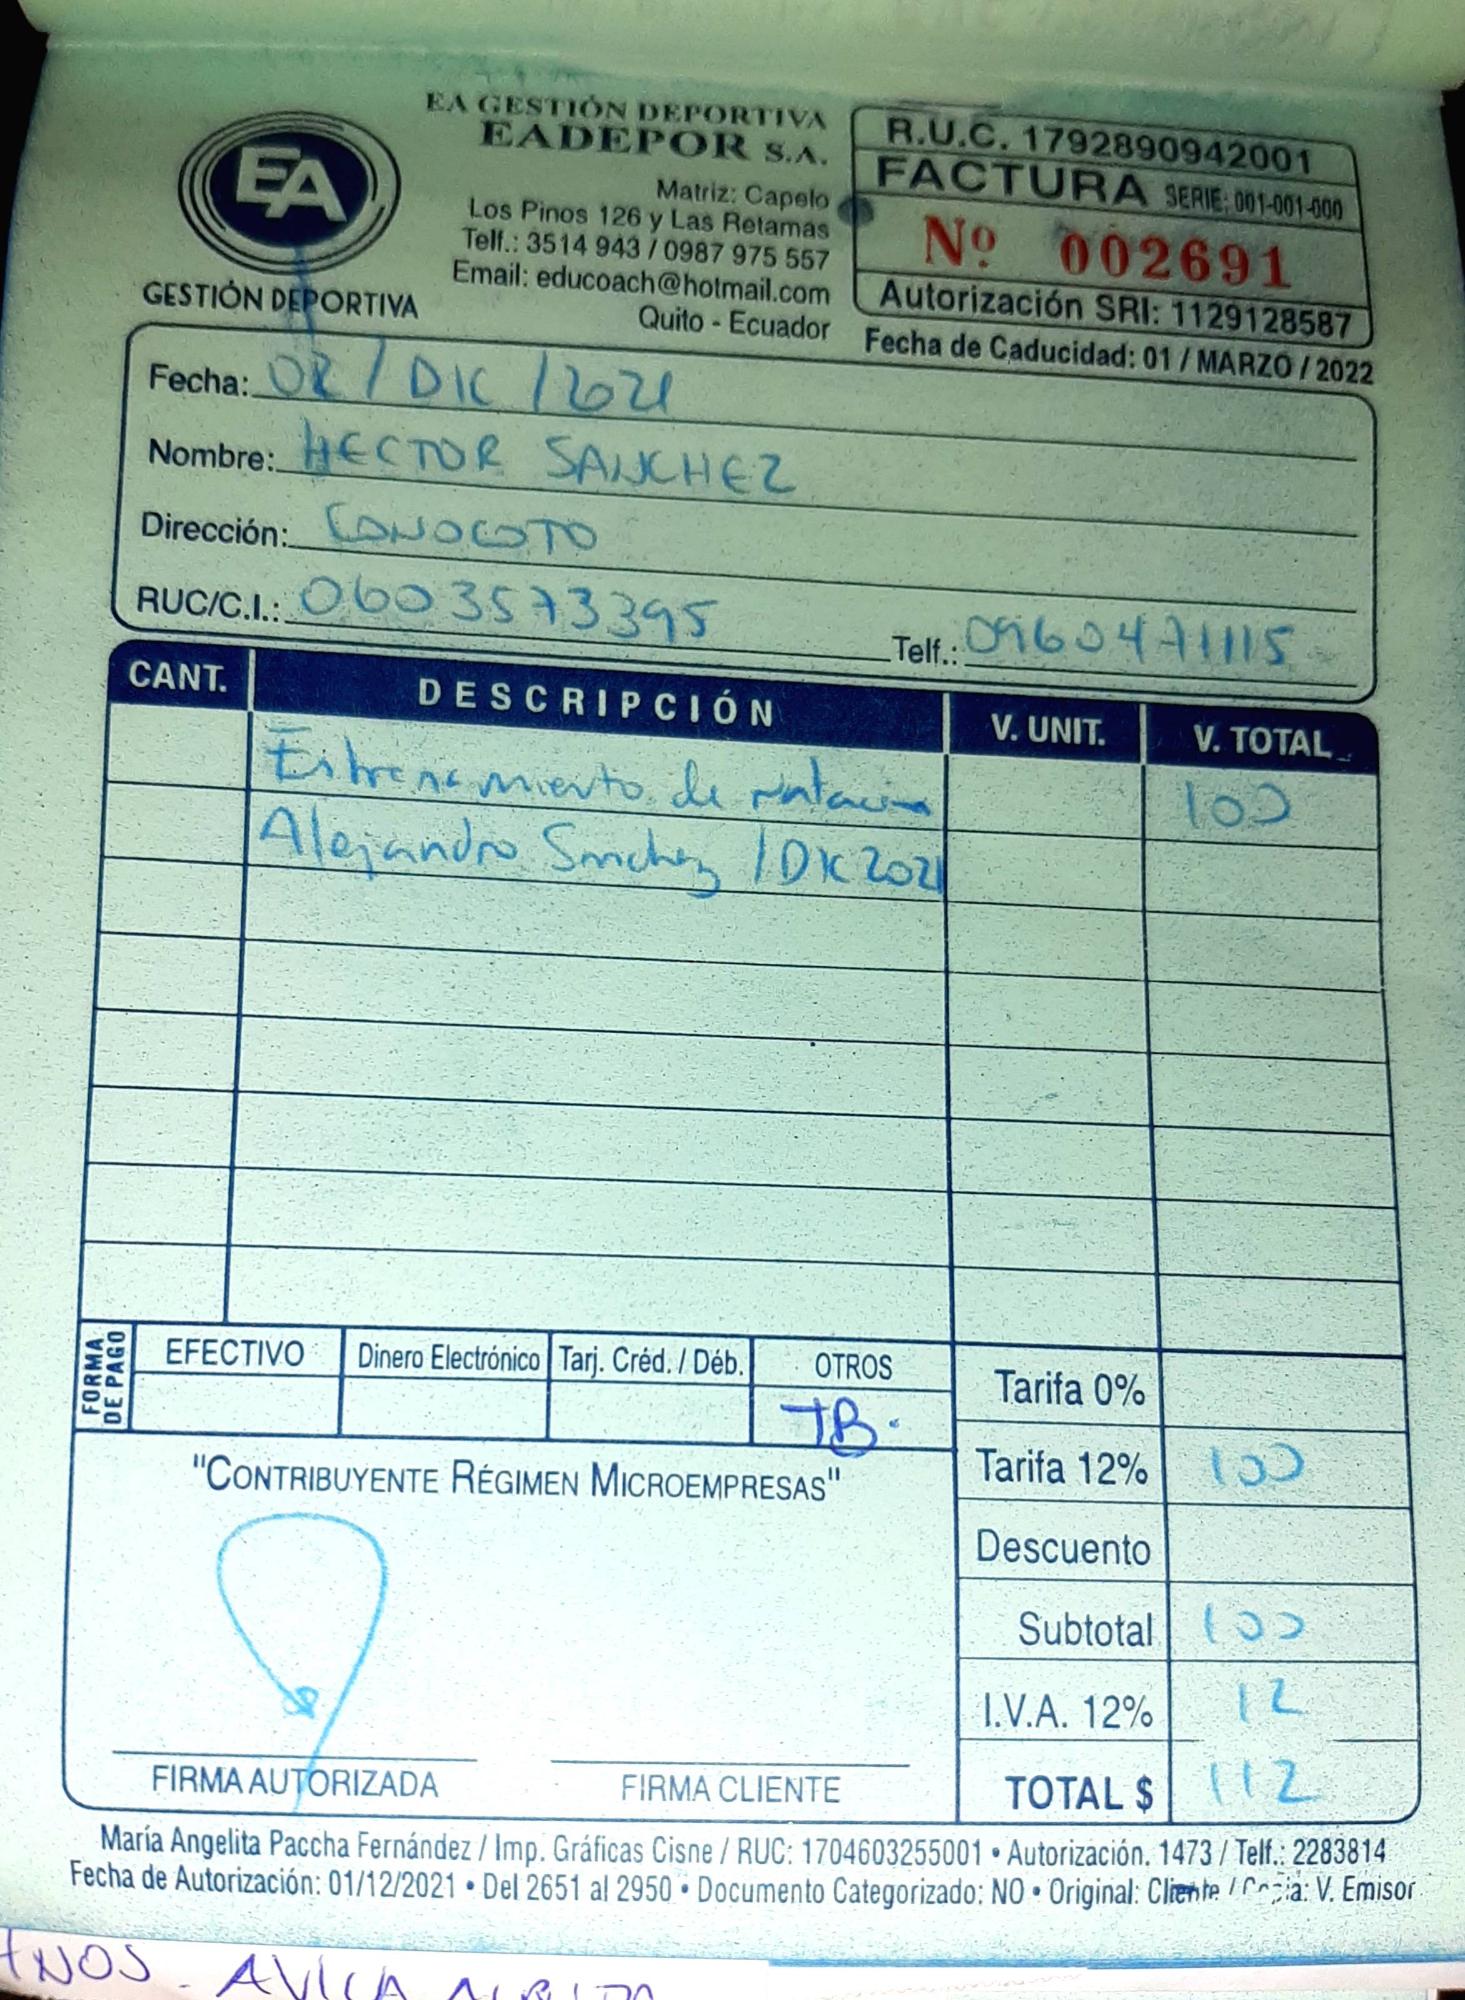 EA GESTIÓN DEPORTIVA
EADEPOR S.A.
EA
GESTIÓN DEPORTIVA
Matriz: Capelo
Los Pinos 126 y Las Retamas
Telf.: 3514 943 / 0987 975 557
Email: educoach@hotmail.com
Quito - Ecuador
R.U.C. 1792890942001
FACTURA SERIE: 001-001-000
Nº 002691
Autorización SRI: 1129128587
Fecha de Caducidad: 01 / MARZO / 2022
Fecha: 02 / DIC / 2021
Nombre: HECTOR SANCHEZ
Dirección: CONOCOTO
RUC/C.I.: 0603573395 Telf.: 0960471115
CANT. DESCRIPCIÓN V. UNIT. V. TOTAL
Entrenamiento de natación 100
Alejandro Sanchez / DIC 2021
FORMA DE PAGO
EFECTIVO Dinero Electrónico Tarj. Créd. / Déb. OTROS
TB.
Tarifa 0%
Tarifa 12% 100
Descuento
Subtotal 100
I.V.A. 12% 12
TOTAL $ 112
"CONTRIBUYENTE RÉGIMEN MICROEMPRESAS"
FIRMA AUTORIZADA FIRMA CLIENTE
María Angelita Paccha Fernández / Imp. Gráficas Cisne / RUC: 1704603255001 • Autorización. 1473 / Telf.: 2283814
Fecha de Autorización: 01/12/2021 • Del 2651 al 2950 • Documento Categorizado: NO • Original: Cliente / Copia: V. Emisor